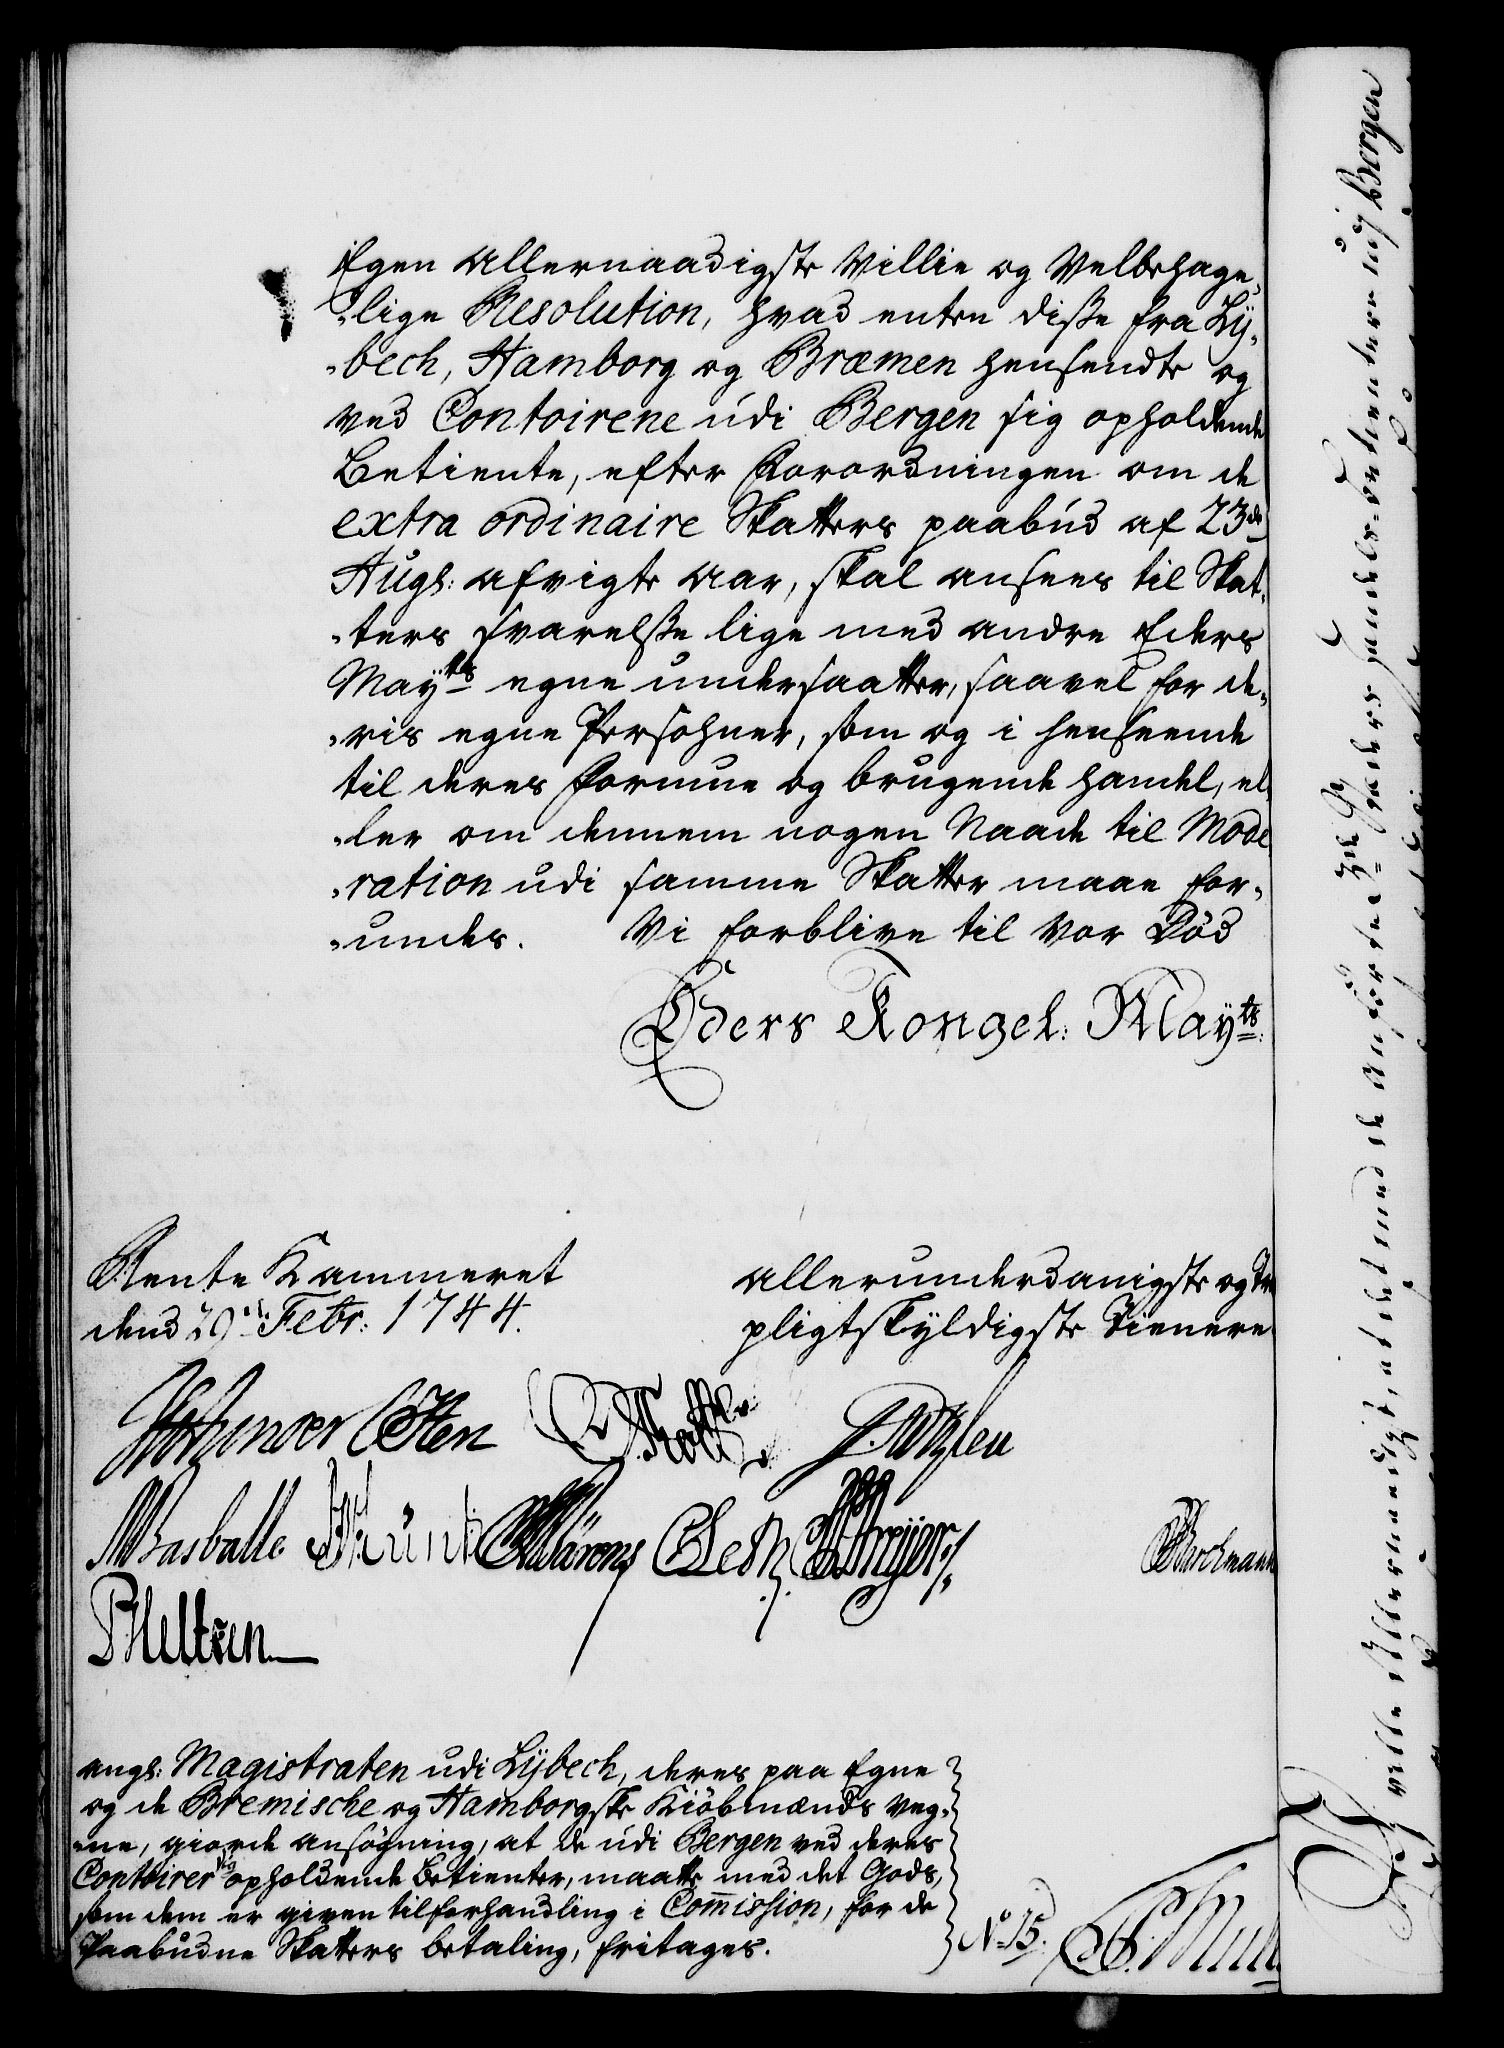 Egen allernaadigste Villie og Velbehage,,
,,lige Resolution, hvad enten disse fra Ly,,
,,bech, Hamborg og Bræmen hensendte og
ved Contoirene udi Bergen sig opholdende
Betiente, efter Forordningen om de
extra ordinaire Skatters paabud af 23de
Augs: afvigte Aar, skal ansees til Skat,,
,,ters svarelse lige med andre Eders
Mayts egne undersaatter, saavel for de,,
,,ris egne Persohner, som og i henseende
til deres Formue og brugende handel, el,,
,,ler om dennem nogen Naade til Mode
,,ration udi samme Skatter maae for,,
,,undes. Vi forblive til vor Död
Eders Kongel: Mayts:
Rente Kammeret
dend 29de Febr: 1744.
allerunderdanigste og Tro
pligtskyldigste Tienere
MBasballe
Barchmann
PNeltzen
angl: Magistraten udi Lybech, deres paa Egne
og de Bremische og Hamborgske Kiöbmænds veg,,
,,ne, giorde ansögning, at de udi Bergen ved deres
Contoirer sig opholdende Betienter, maatte med det Gods,
som dem er given til forhandling i Commission, for de
Paabudne Skatters betaling, fritages.
No 15.
Vi ville Allernaadigst, at det med de anförte 3de Stæders handels-betientere udj Bergen